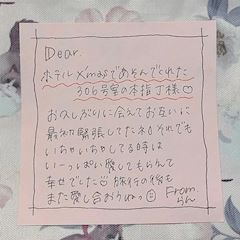 Dear.
ホテルXmasであそんでくれた
306号室の本指丁様♡
お久しぶりに会えてお互いに
最初緊張してたネ それでも
いちゃいちゃしてる時は
いーっぱい愛してもらえて
幸せでした 旅行の後も
また愛し合おうねっ
From
らん